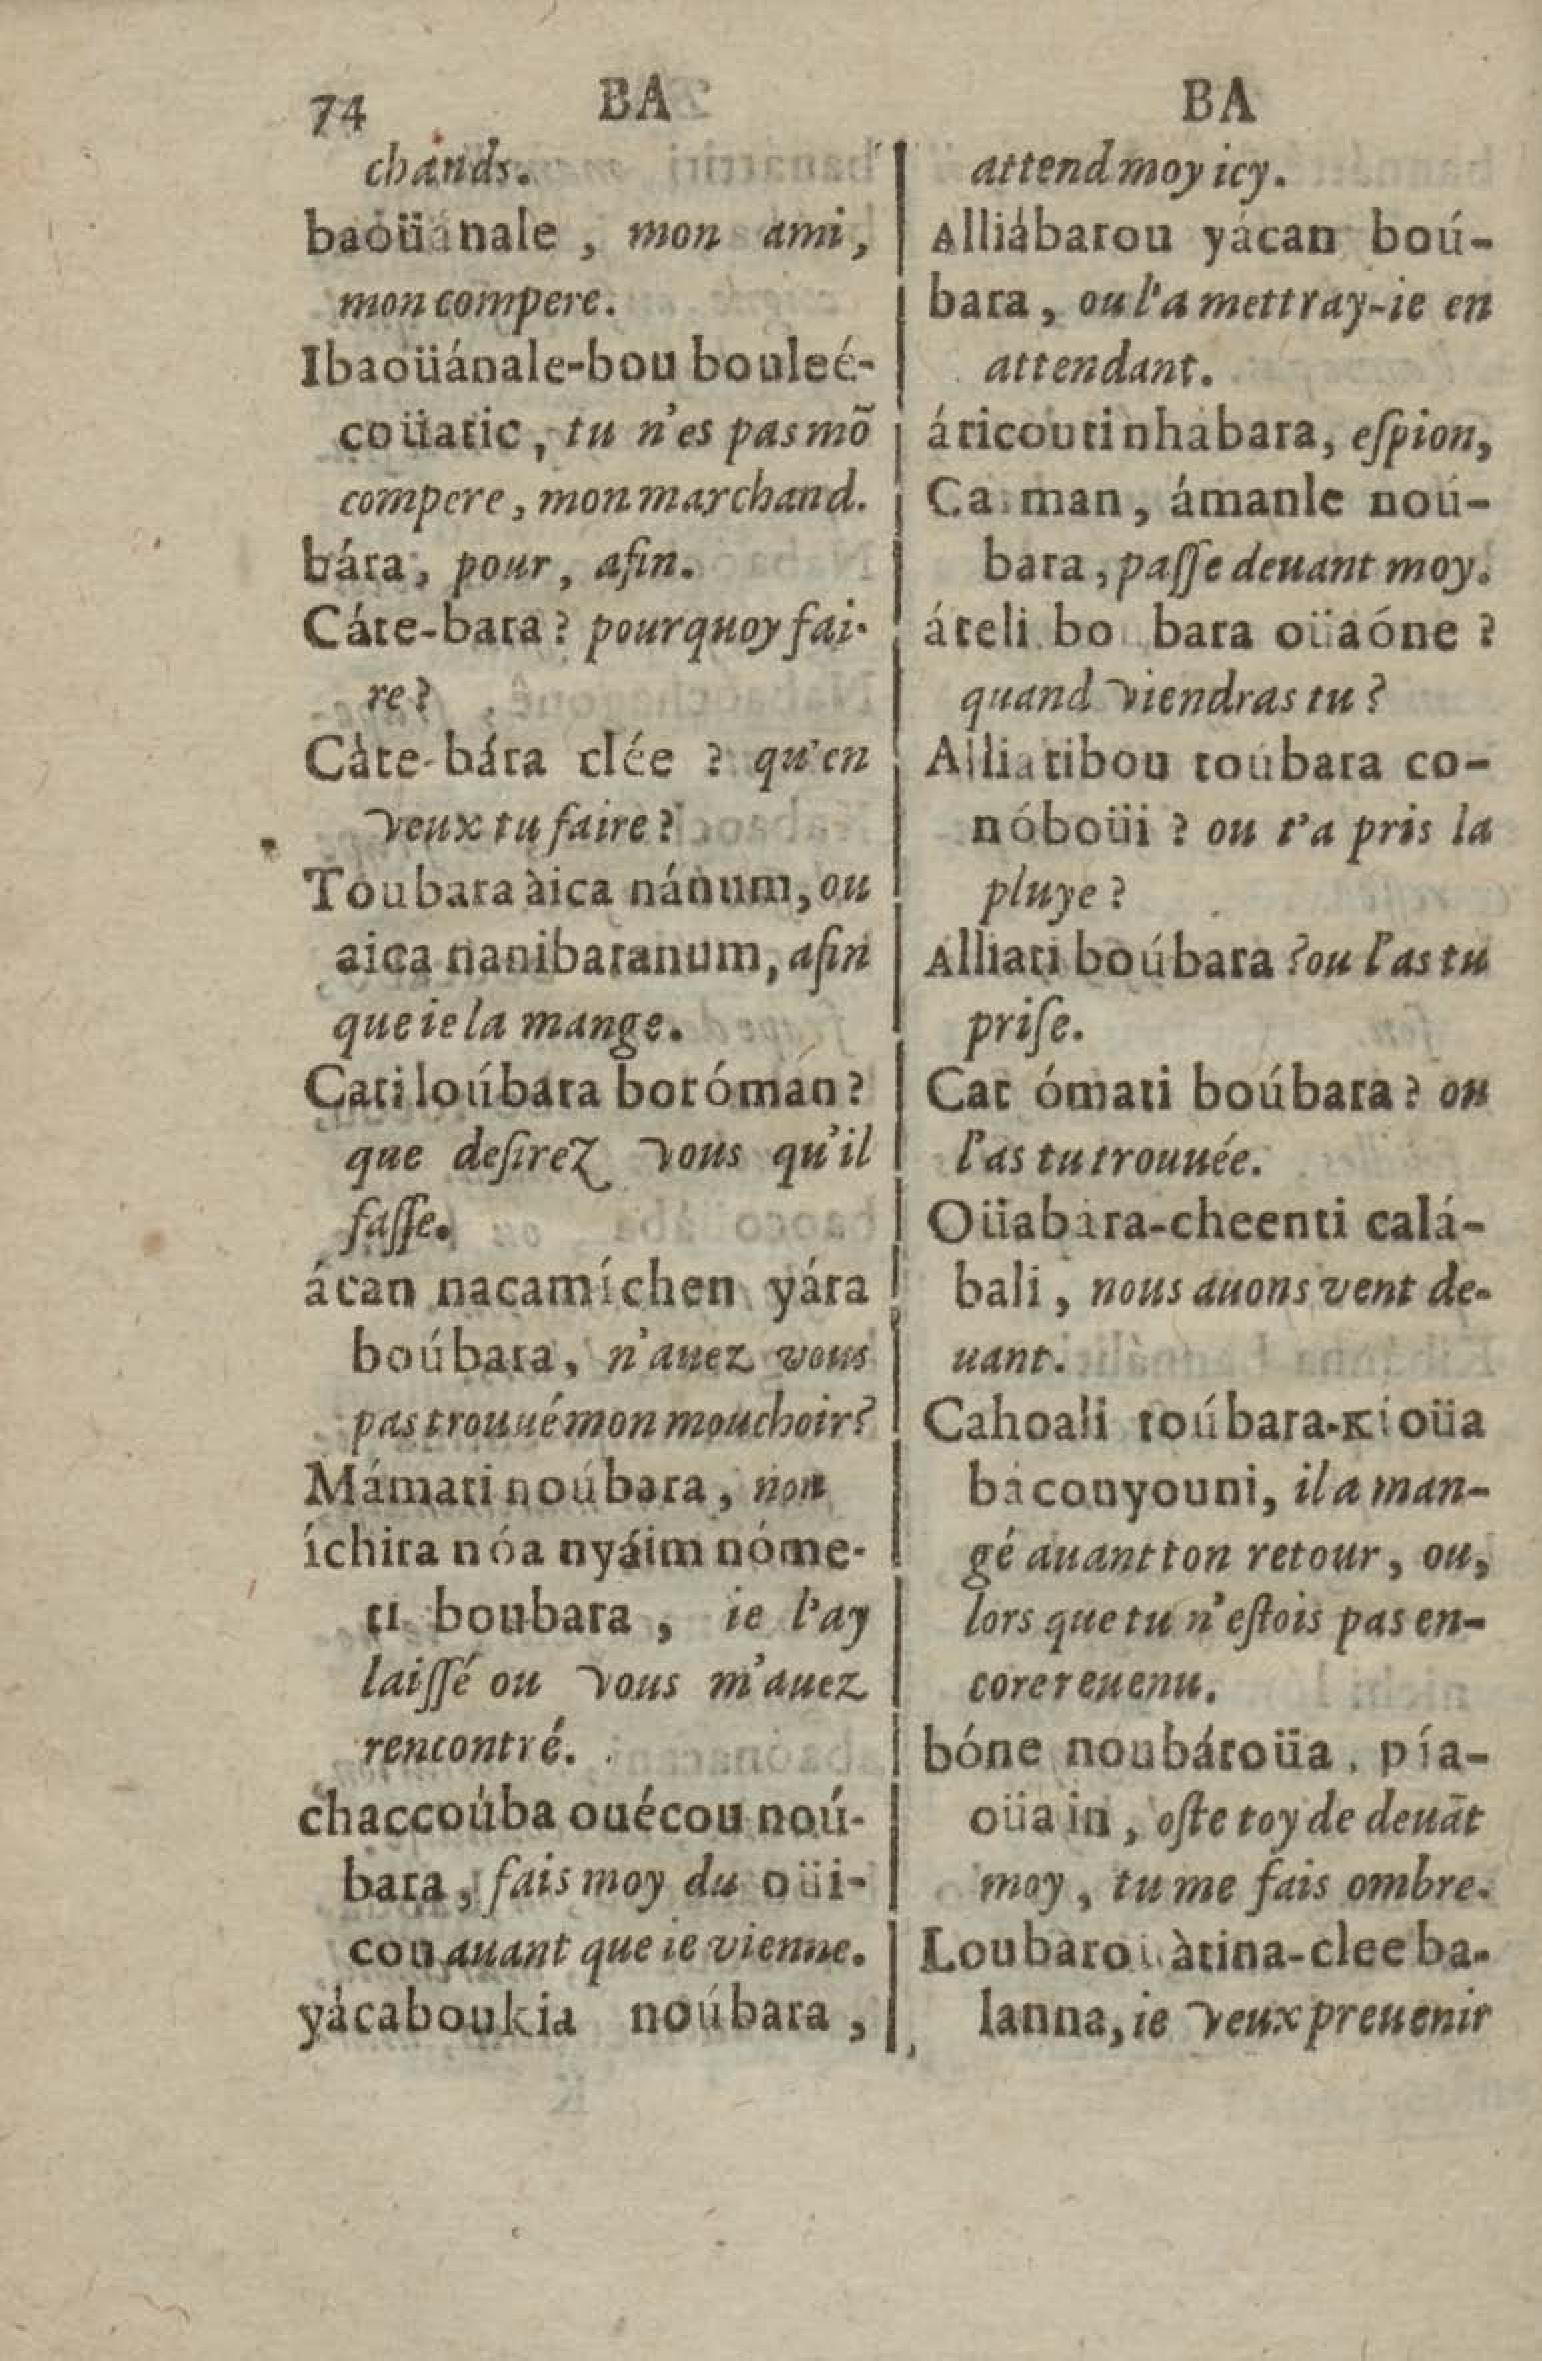 74 BA BA
chands.
baoüánale, mon ami,
mon compere.
Ibaoüánale-bou bouleé-
coüatic, tu n'es pas mõ
compere, mon marchand.
bára, pour, afin.
Cáte-bara? pourquoy fai-
re?
Càte-bára clée ? qu'en
veux tu faire?
Toubara àica nánum, ou
aica nanibaranum, afin
que ie la mange.
Cati loúbara botómán?
que desirez vous qu'il
fasse.
ácan nacamíchen yára
boúbara, n'auez vous
pas trouué mon mouchoir?
Mámati noúbara, non
íchira nóa nyáim nóme-
ti boubara, ie l'ay
laissé ou vous m'auez
rencontré.
chaccoúba ouécou noú-
bara, fais moy du oüi-
cou auant que ie vienne.
yácaboukia noúbara,
attend moy icy.
Alliábarou yácan boú-
bara, ou l'a mettray-ie en
attendant.
áticoutinhabara, espion,
Ca man, ámanle noú-
bara, passe deuant moy.
áteli bo bara oüaóne ?
quand viendras tu ?
Alliatibou toúbara co-
nóboüi ? ou t'a pris la
pluye ?
Alliati boúbara ? ou l'as tu
prise.
Cat ómati boúbara ? ou
l'as tu trouuée.
Oüabára-cheenti calá-
bali, nous auons vent de-
uant.
Cahoali toúbara-kioüa
báconyouni, il a man-
gé auant ton retour, ou,
lors que tu n'estois pas en-
core reuenu.
bóne noubároüa, pía-
oüa in, oste toy de deuãt
moy, tu me fais ombre.
Loubaro àtina-clee ba-
lanna, ie veux preuenir